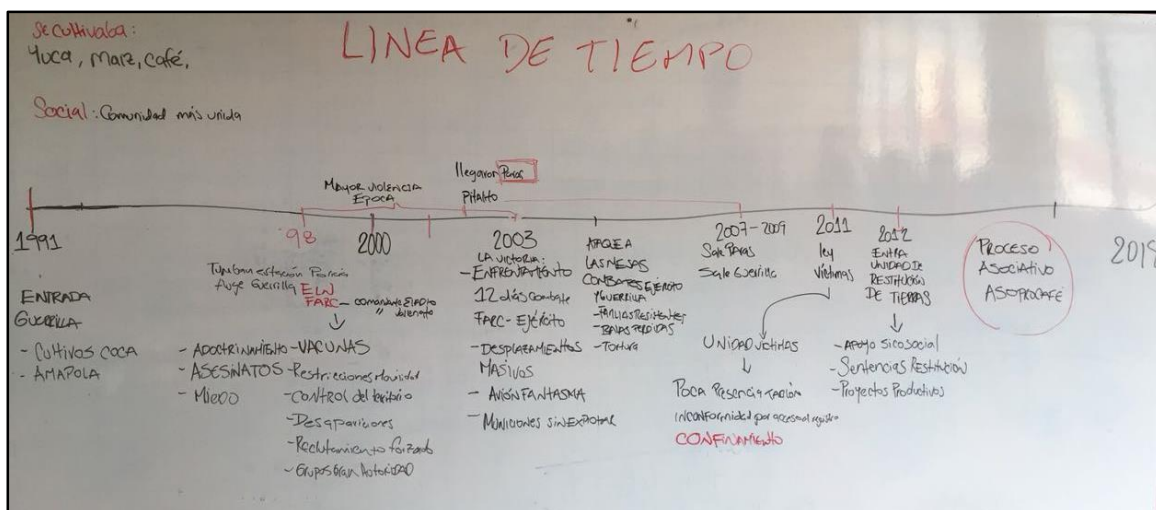 Se cultivaba:
Yuca, maiz, café,
LINEA DE TIEMPO
Social: Comunidad más unida
MAYOR VIOLENCIA
EPOCA
llegaron Paras
Pitalito
1991
ENTRADA
GUERRILLA
- Cultivos COCA
- AMAPOLA
98
Tumban estación Policía
Auge Guerrilla ELN
FARC - comandante
- ADOCTRINAMIENTO
- ASESINATOS
- Miedo
- VACUNAS
- Restricciones Movilidad
- CONTROL del territorio
- Desapariciones
- Reclutamiento forzado
- Grupos Gran Autoridad
2000
2003
LA VICTORIA:
- ENFRENTAMIENTO
12 días Combate
FARC - Ejército
- DESPLAZAMIENTOS
MASIVOS
- AVIÓN FANTASMA
- MUNICIONES SIN EXPLOTAR
ATAQUE A
LAS MESAS
COMBATES EJÉRCITO
Y GUERRILLA
- FAMILIAS Resistentes
- BALAS PERDIDAS
- Tortura
2007-2009
Sale PARAS
Sale Guerrilla
2011
ley
Víctimas
UNIDAD VÍCTIMAS
POCA Presencia
INCONFORMIDAD por acceso al registro
CONFINAMIENTO
2012
ENTRA
UNIDAD DE
RESTITUCIÓN
DE TIERRAS
- APOYO sicosocial
- Sentencias RESTITUCIÓN
- Proyectos Productivos
PROCESO
ASOCIATIVO
ASOPROCAFÉ
2019